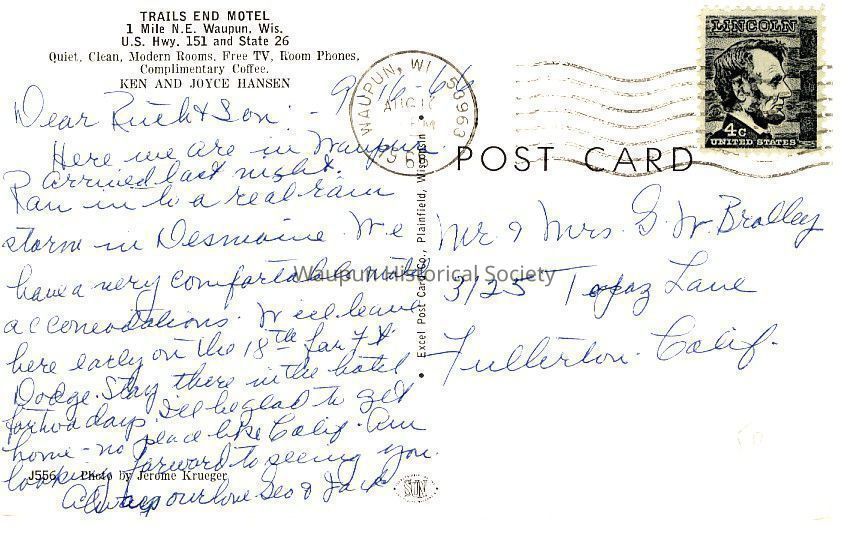 TRAILS END MOTEL
1 Mile N.E. Waupun, Wis.
U.S. Hwy. 151 and State 26
Quiet, Clean, Modern Rooms, Free TV, Room Phones,
Complimentary Coffee.
KEN AND JOYCE HANSEN
Dear Ruth & Son: - 9-16-64
Here we are in Waupun
arrived last night.
Ran in to a real rain
storm in Desmoine. We
have a very comfortable
accomodations. Will leave
here early on the 18th for Ft
Dodge. Stay there in the hotel
for two days. I'll be glad to get
home - no place like Calif. Am
looking forward to seeing you.
Always our love Geo & Jack
J556 Photo by Jerome Krueger
Excel Post Card Co., Plainfield, Wisconsin
SUN
WAUPUN, WI 53963
AUG 16
PM
LINCOLN
4c
UNITED STATES
POST CARD
Mr & Mrs. G. W. Bradley
3125 Topaz Lane
Fullerton. Calif.
Waupun Historical Society